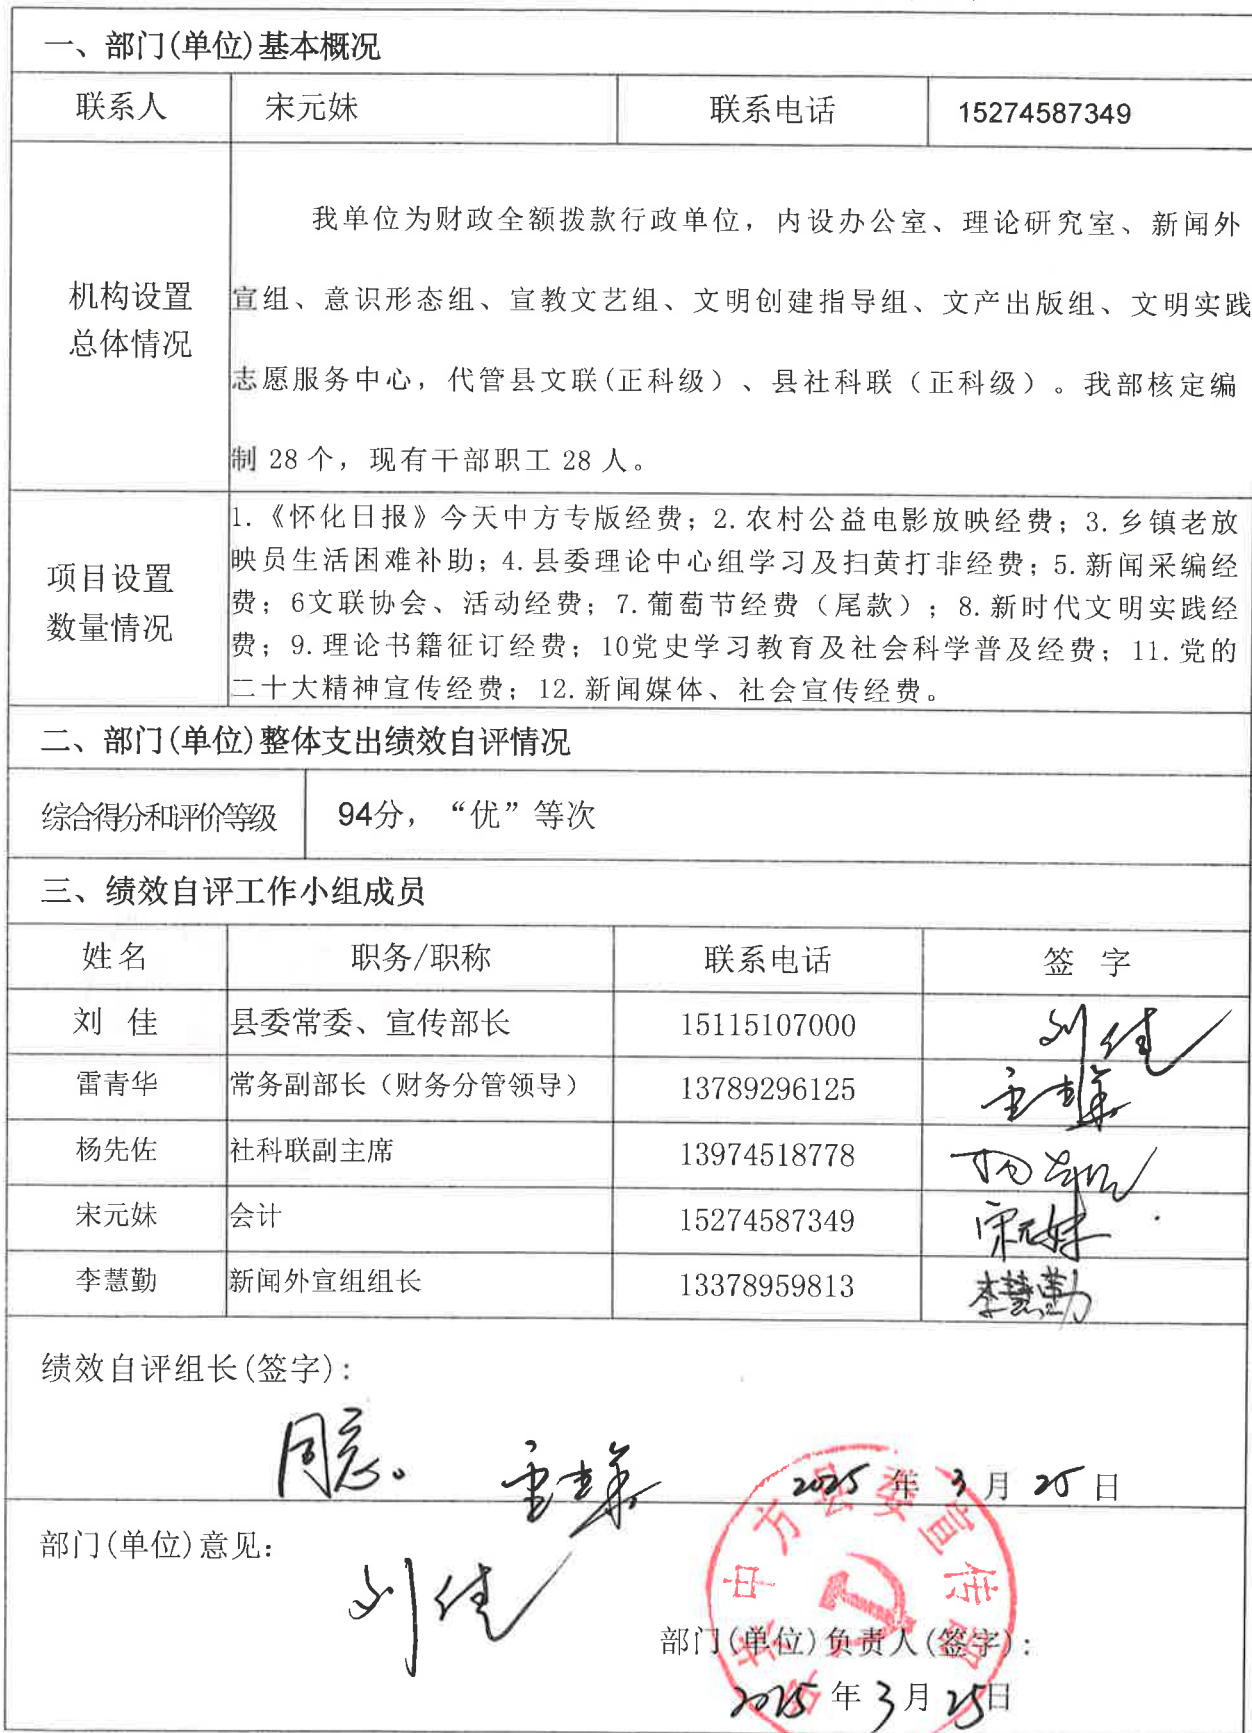 一、部门(单位)基本概况
联系人 宋元妹 联系电话 15274587349
我单位为财政全额拨款行政单位，内设办公室、理论研究室、新闻外
机构设置
总体情况
宣组、意识形态组、宣教文艺组、文明创建指导组、文产出版组、文明实践
志愿服务中心，代管县文联(正科级）、县社科联（正科级）。我部核定编
制 28 个，现有干部职工 28 人。
项目设置
数量情况
1.《怀化日报》今天中方专版经费；2.农村公益电影放映经费；3.乡镇老放
映员生活困难补助；4.县委理论中心组学习及扫黄打非经费；5.新闻采编经
费；6文联协会、活动经费；7.葡萄节经费（尾款）；8.新时代文明实践经
费；9.理论书籍征订经费；10党史学习教育及社会科学普及经费；11.党的
二十大精神宣传经费；12.新闻媒体、社会宣传经费。
二、部门(单位)整体支出绩效自评情况
综合得分和评价等级 94分，“优”等次
三、绩效自评工作小组成员
姓名 职务/职称 联系电话 签 字
刘 佳 县委常委、宣传部长 15115107000 刘佳
雷青华 常务副部长（财务分管领导） 13789296125 雷青华
杨先佐 社科联副主席 13974518778 杨先佐
宋元妹 会计 15274587349 宋元妹
李慧勤 新闻外宣组组长 13378959813 李慧勤
绩效自评组长(签字)：
同意。 雷青华 2025 年 3 月 25 日
部门(单位)意见：
刘佳
中共中方县委宣传部
部门(单位)负责人(签字)：
2025 年 3 月 25 日